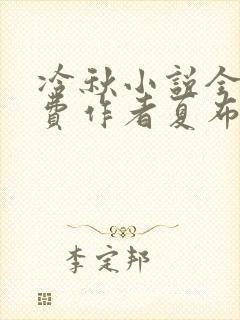 冷秋小説全
費作者夏布
李定邦